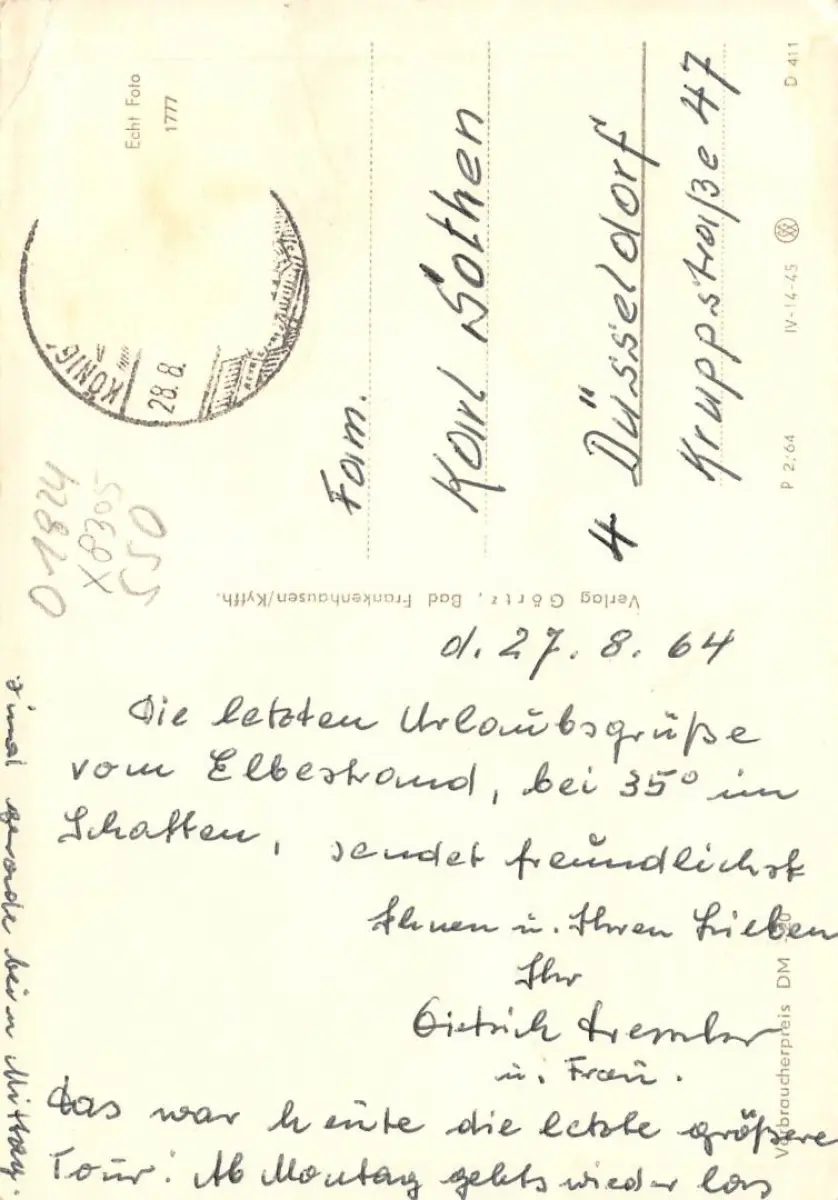 d. 27. 8. 64
Die letzten Urlaubsgrüße
vom Elbestrand, bei 35° im
Schatten, sendet freundlichst
Ihnen u. Ihren Lieben
Ihr
Dietrich
u. Frau.
Das war heute die letzte größere
Tour! Ab Montag gehts wieder los
gerade beim Mittag.
Fam.
Karl Sothen
4 Düsseldorf
Kruppstraße 47
Echt Foto
1777
KÖNIG
28.8.
01824
X8305
550
Verlag Görtz, Bad Frankenhausen/Kyffh.
P 2/64 IV-14-45 D 411
Verbraucherpreis DM -,20